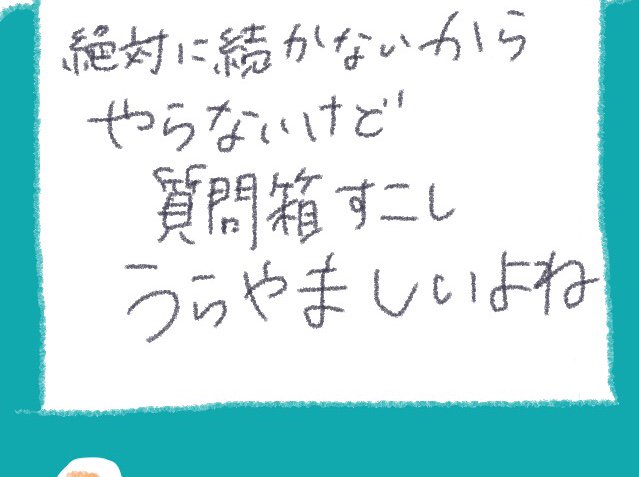 絶対に続かないから
やらないけど
質問箱すこし
うらやましいよね